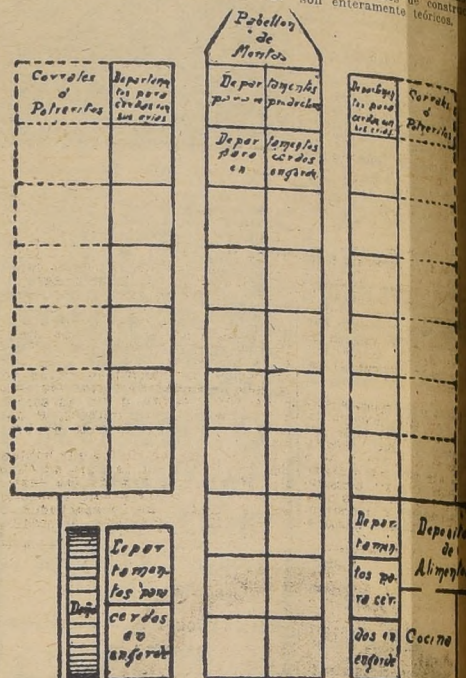 de construc
son enteramente teóricos.
Pabellon
de
Monta
Corrales
ó
Potreritos
Departamen
tos para
cerdas con
sus crias
Depar tamentos
para re productores
Depar tamentos
para cerdos
en engorde
Departamen
tos para
cerdas con
sus crias
Corrales
ó
Potreritos
Depar
tamen-
tos para
cerdos
en
engorde
Baño
Depar-
tamen-
tos pa-
ra cer-
dos en
engorde
Deposito
de
Aliment
Cocina